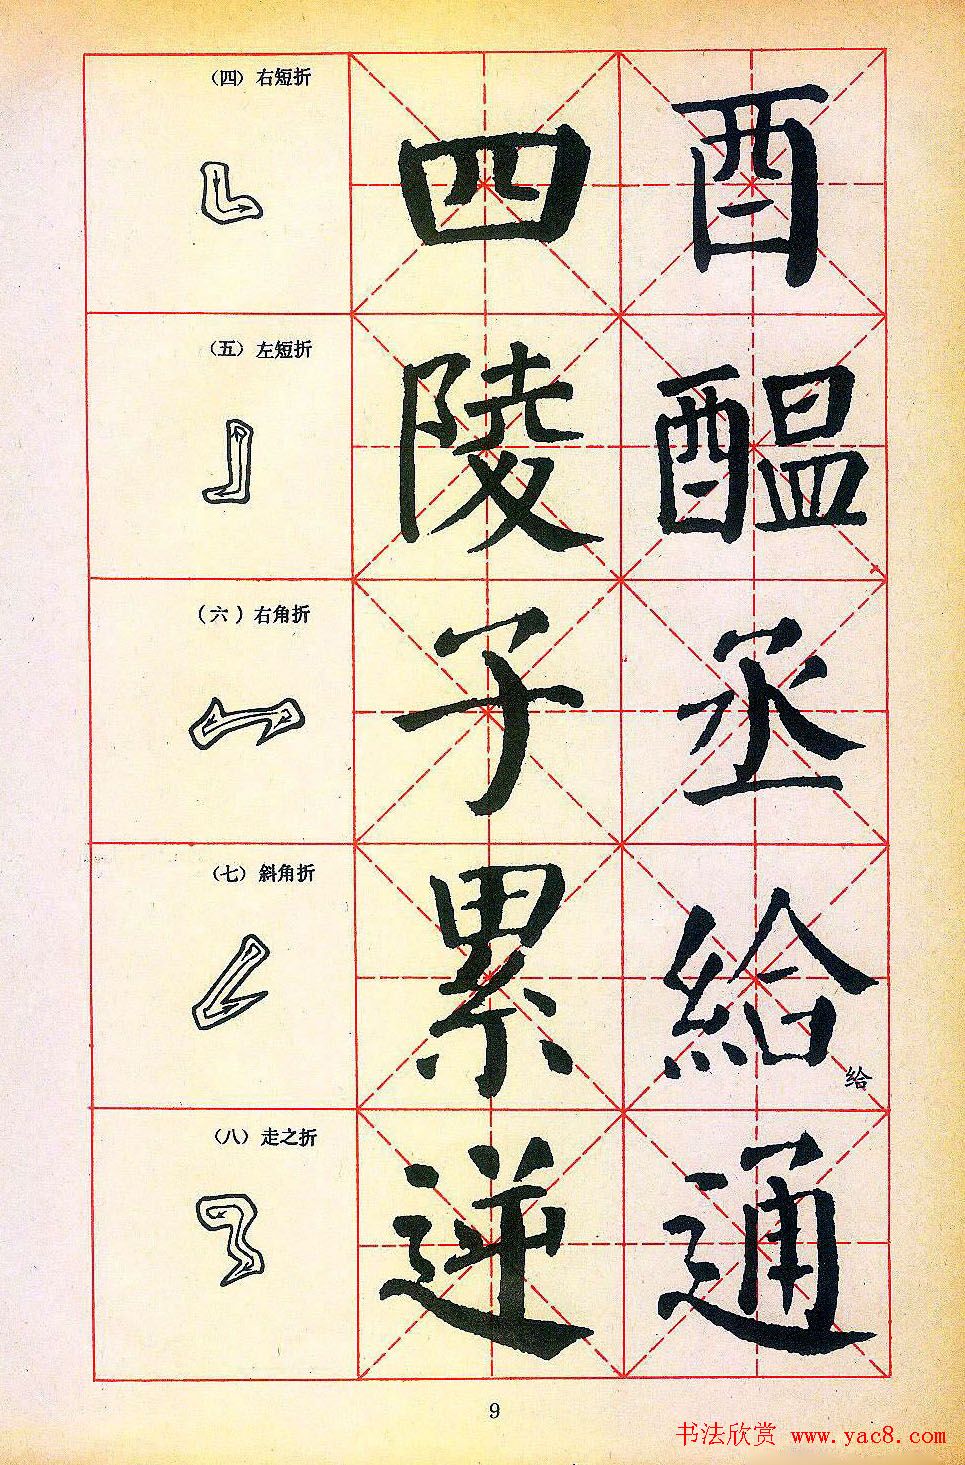 (四)右短折
四 酉
(五)左短折
陵 醖
(六)右角折
子 丞
(七)斜角折
累 給
给
(八)走之折
逆 通
9
书法欣赏 www.yac8.com